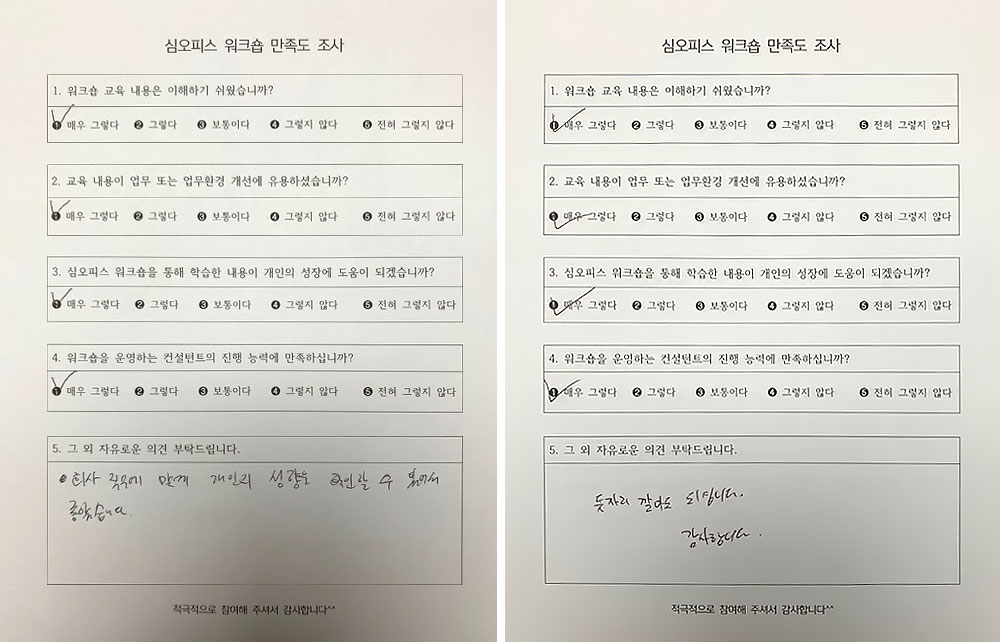 심오피스 워크숍 만족도 조사
1. 워크숍 교육 내용은 이해하기 쉬웠습니까?
❶ 매우 그렇다 ❷ 그렇다 ❸ 보통이다 ❹ 그렇지 않다 ❺ 전혀 그렇지 않다
2. 교육 내용이 업무 또는 업무환경 개선에 유용하셨습니까?
❶ 매우 그렇다 ❷ 그렇다 ❸ 보통이다 ❹ 그렇지 않다 ❺ 전혀 그렇지 않다
3. 심오피스 워크숍을 통해 학습한 내용이 개인의 성장에 도움이 되겠습니까?
❶ 매우 그렇다 ❷ 그렇다 ❸ 보통이다 ❹ 그렇지 않다 ❺ 전혀 그렇지 않다
4. 워크숍을 운영하는 컨설턴트의 진행 능력에 만족하십니까?
❶ 매우 그렇다 ❷ 그렇다 ❸ 보통이다 ❹ 그렇지 않다 ❺ 전혀 그렇지 않다
5. 그 외 자유로운 의견 부탁드립니다.
회사 직무에 맞게 개인의 성향을 확인할 수 있어서
좋았습니다.
적극적으로 참여해 주셔서 감사합니다^^
심오피스 워크숍 만족도 조사
1. 워크숍 교육 내용은 이해하기 쉬웠습니까?
❶ 매우 그렇다 ❷ 그렇다 ❸ 보통이다 ❹ 그렇지 않다 ❺ 전혀 그렇지 않다
2. 교육 내용이 업무 또는 업무환경 개선에 유용하셨습니까?
❶ 매우 그렇다 ❷ 그렇다 ❸ 보통이다 ❹ 그렇지 않다 ❺ 전혀 그렇지 않다
3. 심오피스 워크숍을 통해 학습한 내용이 개인의 성장에 도움이 되겠습니까?
❶ 매우 그렇다 ❷ 그렇다 ❸ 보통이다 ❹ 그렇지 않다 ❺ 전혀 그렇지 않다
4. 워크숍을 운영하는 컨설턴트의 진행 능력에 만족하십니까?
❶ 매우 그렇다 ❷ 그렇다 ❸ 보통이다 ❹ 그렇지 않다 ❺ 전혀 그렇지 않다
5. 그 외 자유로운 의견 부탁드립니다.
돗자리 깔아도 되십니다.
감사합니다.
적극적으로 참여해 주셔서 감사합니다^^